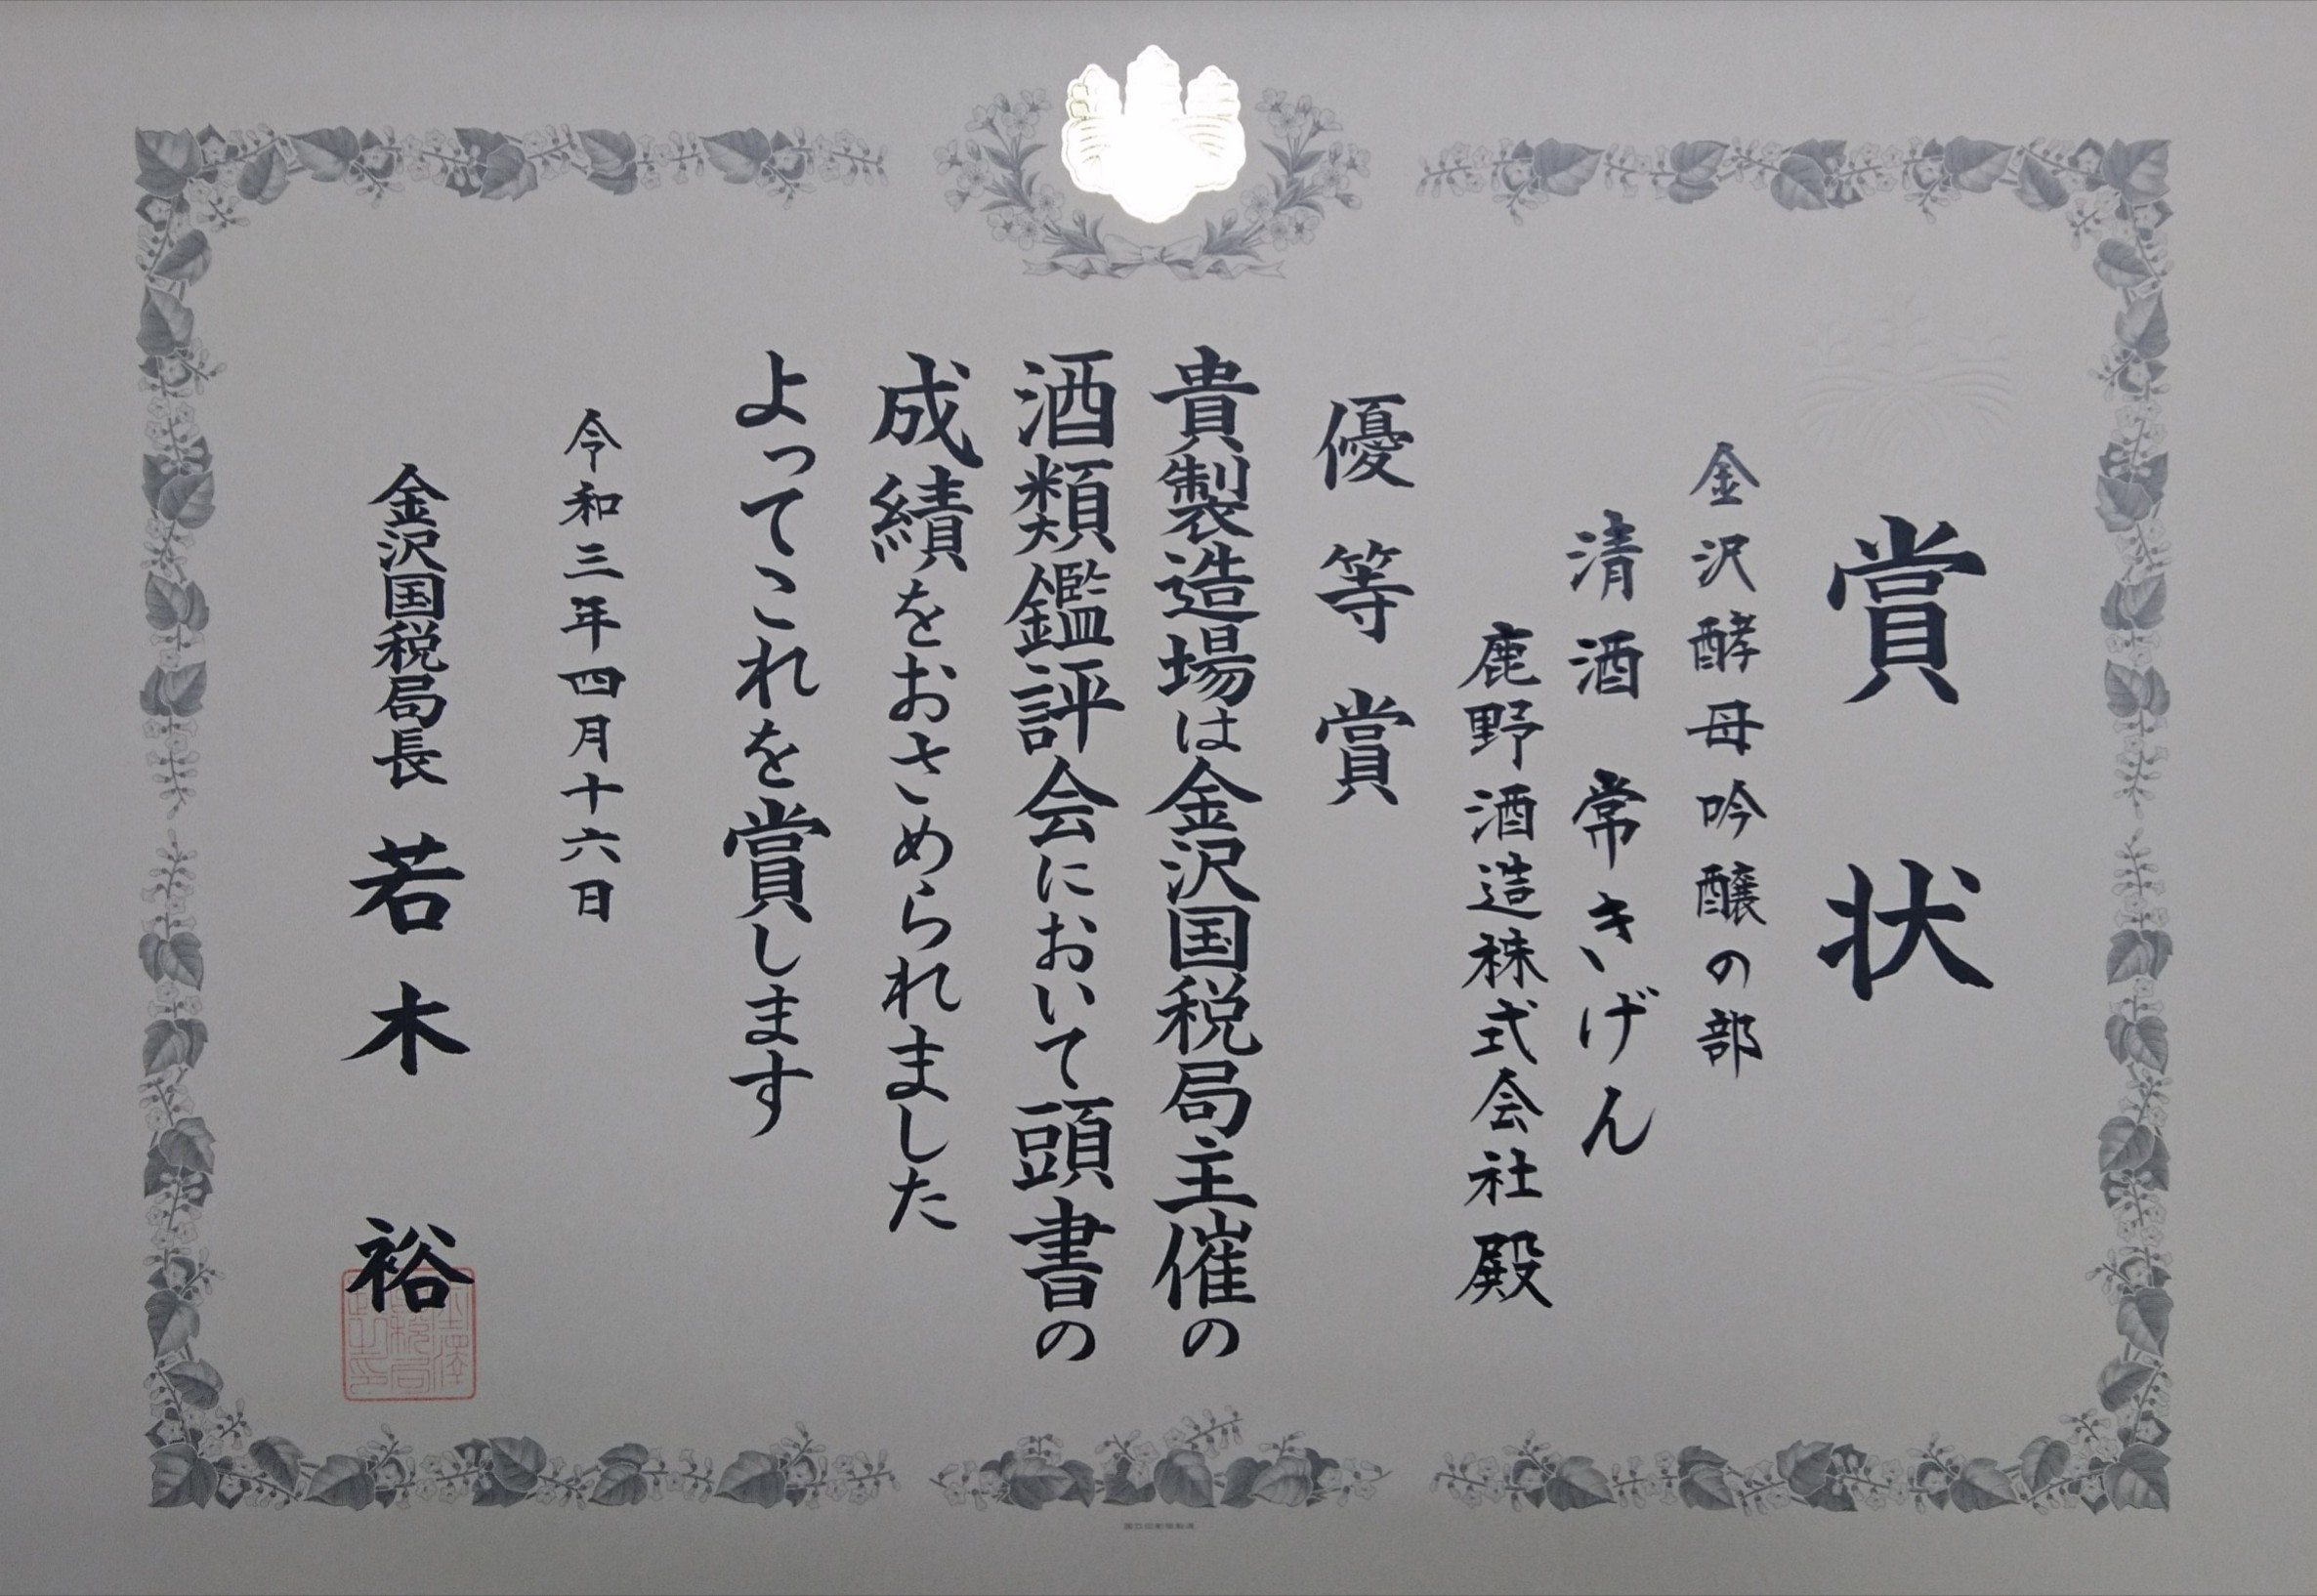 賞状
金沢酵母吟醸の部
清酒 常きげん
鹿野酒造株式会社殿
優等賞
貴製造場は金沢国税局主催の
酒類鑑評会において頭書の
成績をおさめられました
よってこれを賞します
令和三年四月十六日
金沢国税局長 若木 裕